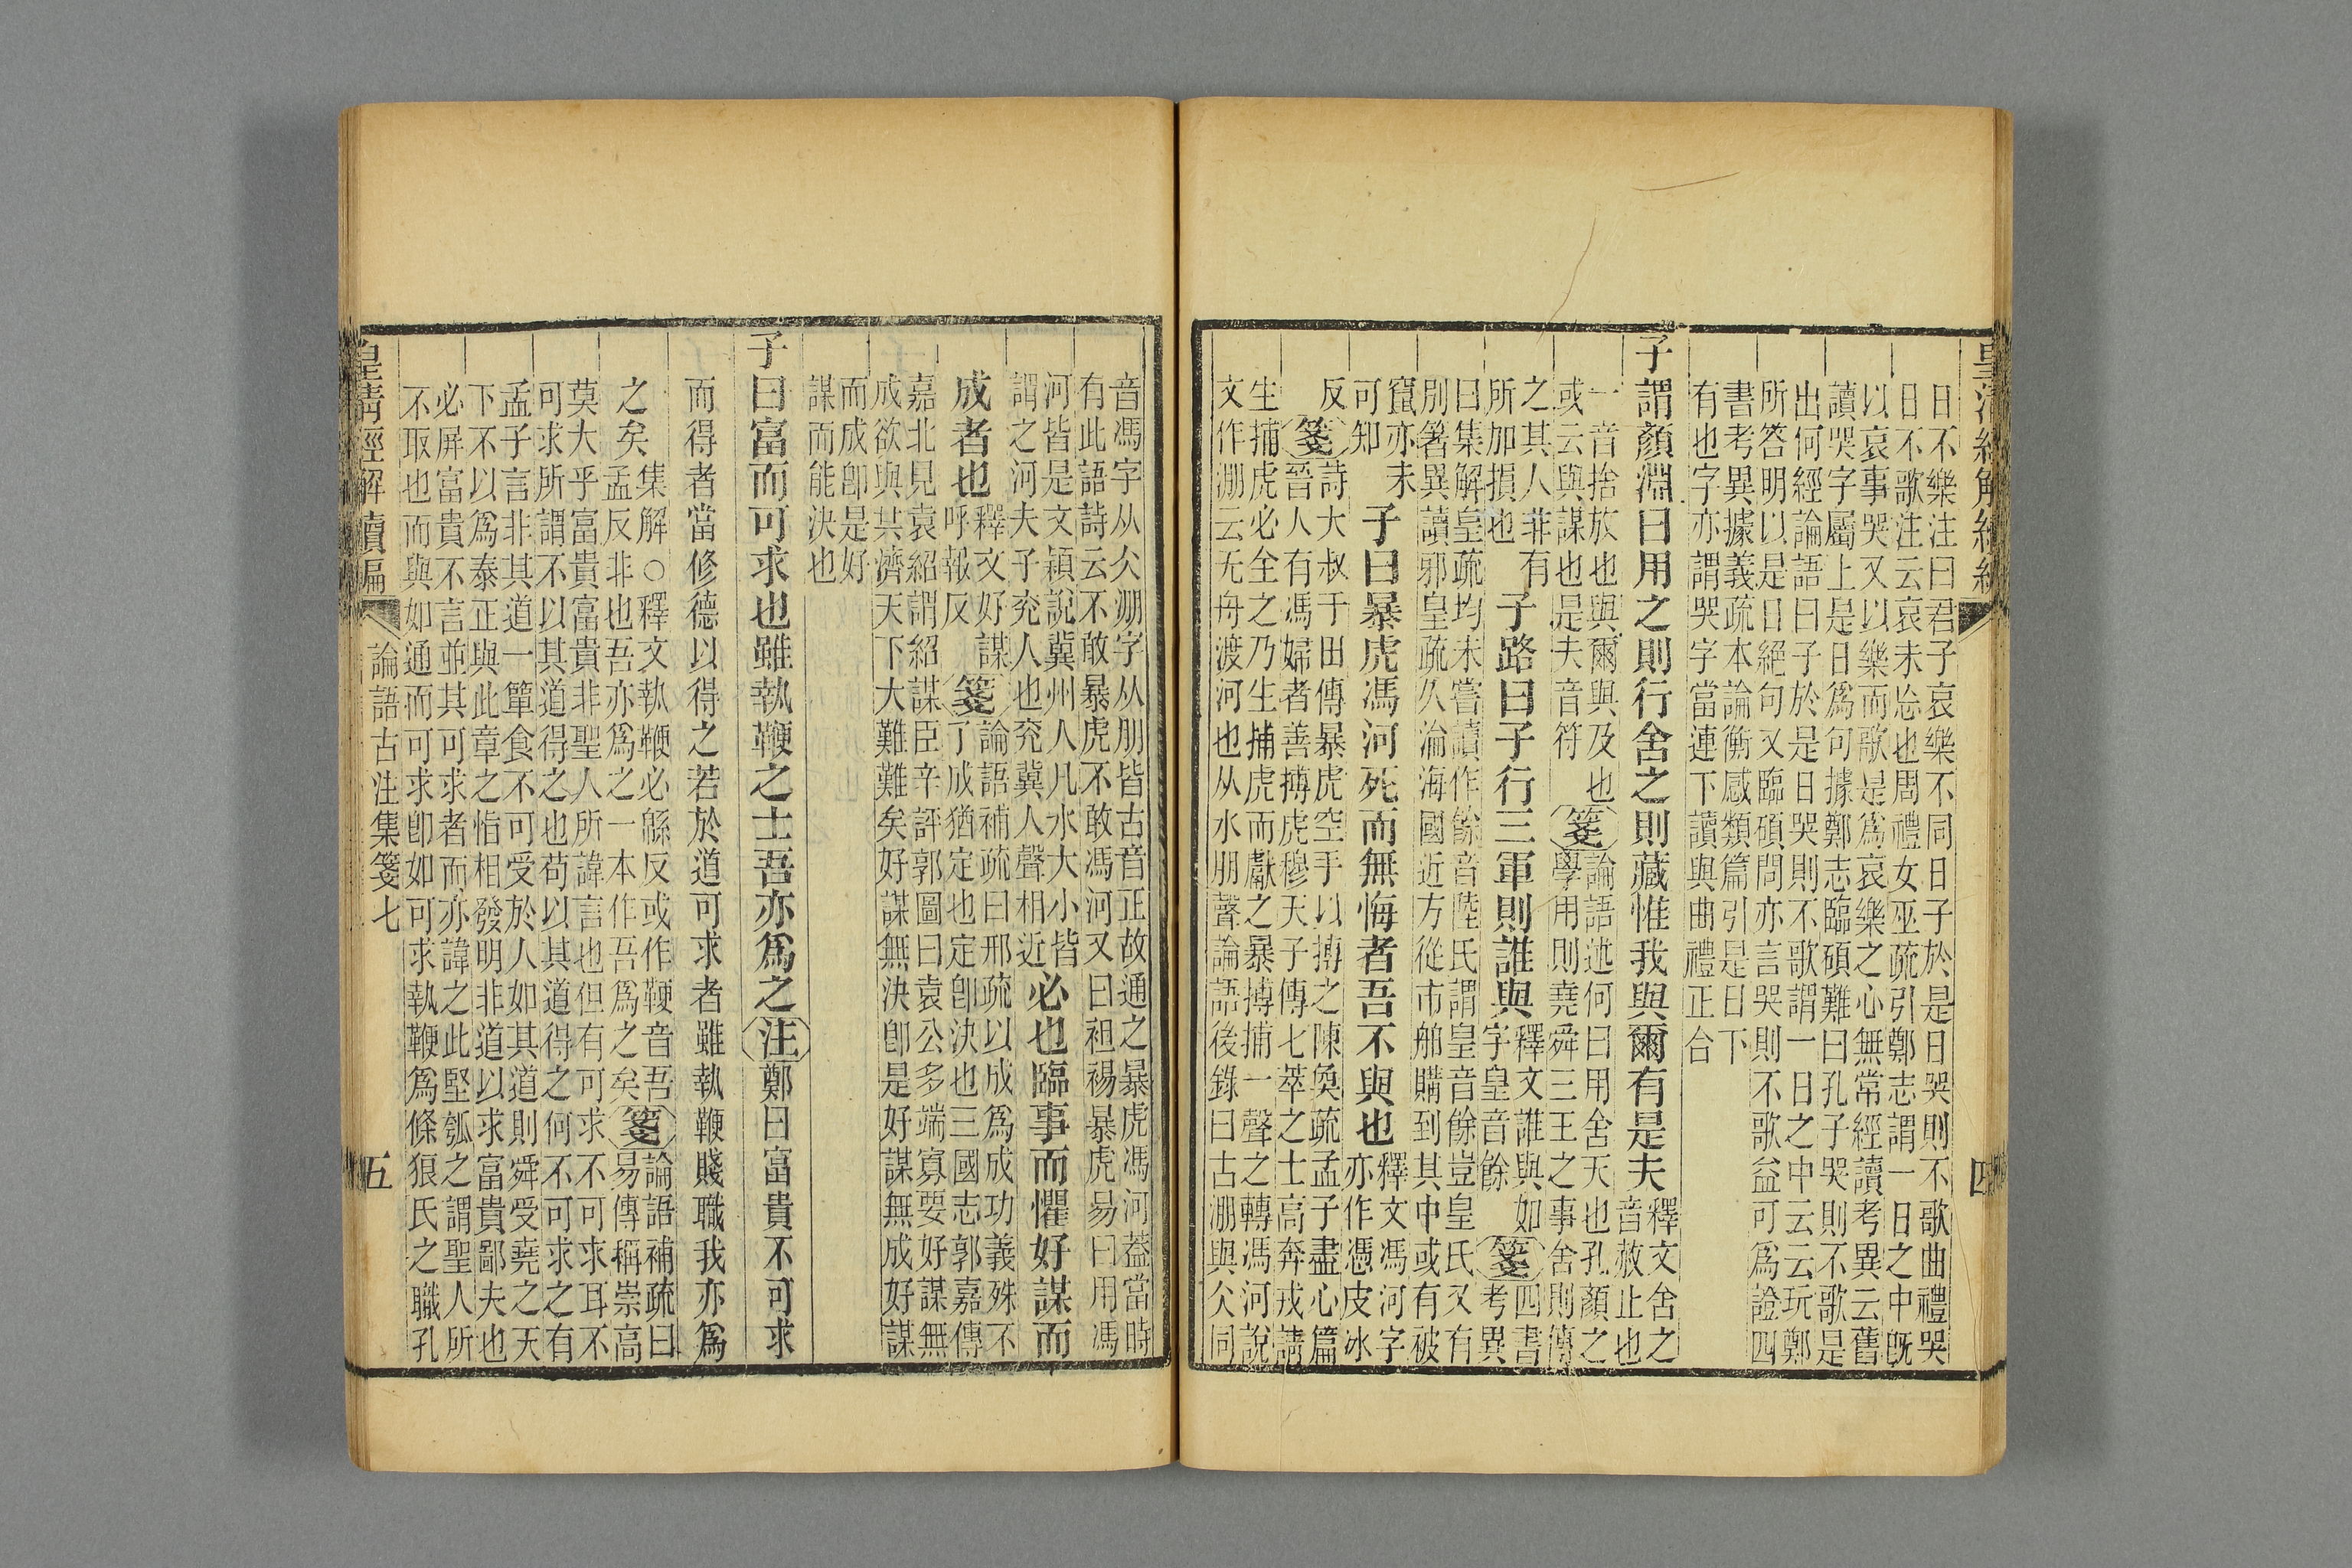 皇清經解續編 四
日不樂注曰君子哀樂不同日子於是日哭則不歌曲禮哭
日不歌注云哀未忘也周禮女巫疏引鄭志謂一日之中既
以哀事哭又以樂而歌是爲哀樂之心無常經讀考異云舊
讀哭字屬上是日爲句據鄭志臨碩難曰孔子哭則不歌是
出何經論語曰子於是日哭則不歌謂一日之中云云玩鄭
所答明以是日絕句又臨碩問亦言哭則不歌益可爲證四
書考異據義疏本論衡感類篇引是日下
有也字亦謂哭字當連下讀與曲禮正合
子謂顏淵曰用之則行舍之則藏惟我與爾有是夫釋文舍之音赦止也
一音捨放也與爾與及也或云與謀也是夫音符箋論語述何曰用舍天也孔顏之學用則堯舜三王之事舍則傳
之其人非有所加損也子路曰子行三軍則誰與釋文誰與如字皇音餘箋四書考異
曰集解皇疏均未嘗讀作餘音陸氏謂皇音餘豈皇氏又有
別箸異讀邪皇疏久淪海國近方從市舶購到其中或有被
竄亦未可知子曰暴虎馮河死而無悔者吾不與也釋文馮河字亦作憑皮冰
反箋詩大叔于田傳暴虎空手以搏之陳奐疏孟子盡心篇晉人有馮婦者善搏虎穆天子傳七萃之士高奔戎請
生捕虎必全之乃生捕虎而獻之暴搏捕一聲之轉馮河說
文作淜云无舟渡河也从水朋聲論語後錄曰古淜與仌同
音馮字从仌淜字从朋皆古音正故通之暴虎馮河葢當時
有此語詩云不敢暴虎不敢馮河又曰袒裼暴虎易曰用馮
河皆是文穎說冀州人凡水大小皆謂之河夫子兗人也兗冀人聲相近必也臨事而懼好謀而
成者也釋文好謀呼報反箋論語補疏曰邢疏以成爲成功義殊不了成猶定也定卽決也三國志郭嘉傳
嘉北見袁紹謂紹謀臣辛評郭圖曰袁公多端寡要好謀無
成欲與共濟天下大難難矣好謀無決卽是好謀無成好謀
而成卽是好
謀而能決也
子曰富而可求也雖執鞭之士吾亦爲之注鄭曰富貴不可求
而得者當修德以得之若於道可求者雖執鞭賤職我亦爲
之矣集解○釋文執鞭必緜反或作鞕音吾孟反非也吾亦爲之一本作吾爲之矣箋論語補疏曰易傳稱崇高
莫大乎富貴富貴非聖人所諱言也但有可求不可求耳不
可求所謂不以其道得之也苟以其道得之何不可求之有
孟子言非其道一簞食不可受於人如其道則舜受堯之天
下不以爲泰正與此章之恉相發明非道以求富貴鄙夫也
必屏富貴不言並其可求者而亦諱之此堅瓠之謂聖人所
不取也而與如通而可求卽如可求執鞭爲條狼氏之職孔
皇清經解續編 論語古注集箋七 五